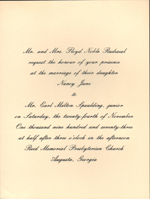 Mr. and Mrs. Lloyd Noble
request the honour of your presence
at the marriage of their daughter
Nancy Jane
to
Mr. Earl Melton Spaulding, junior
on Saturday, the twenty-fourth of November
One thousand nine hundred and seventy-three
at half after three o'clock in the afternoon
Reid Memorial Presbyterian Church
Augusta, Georgia